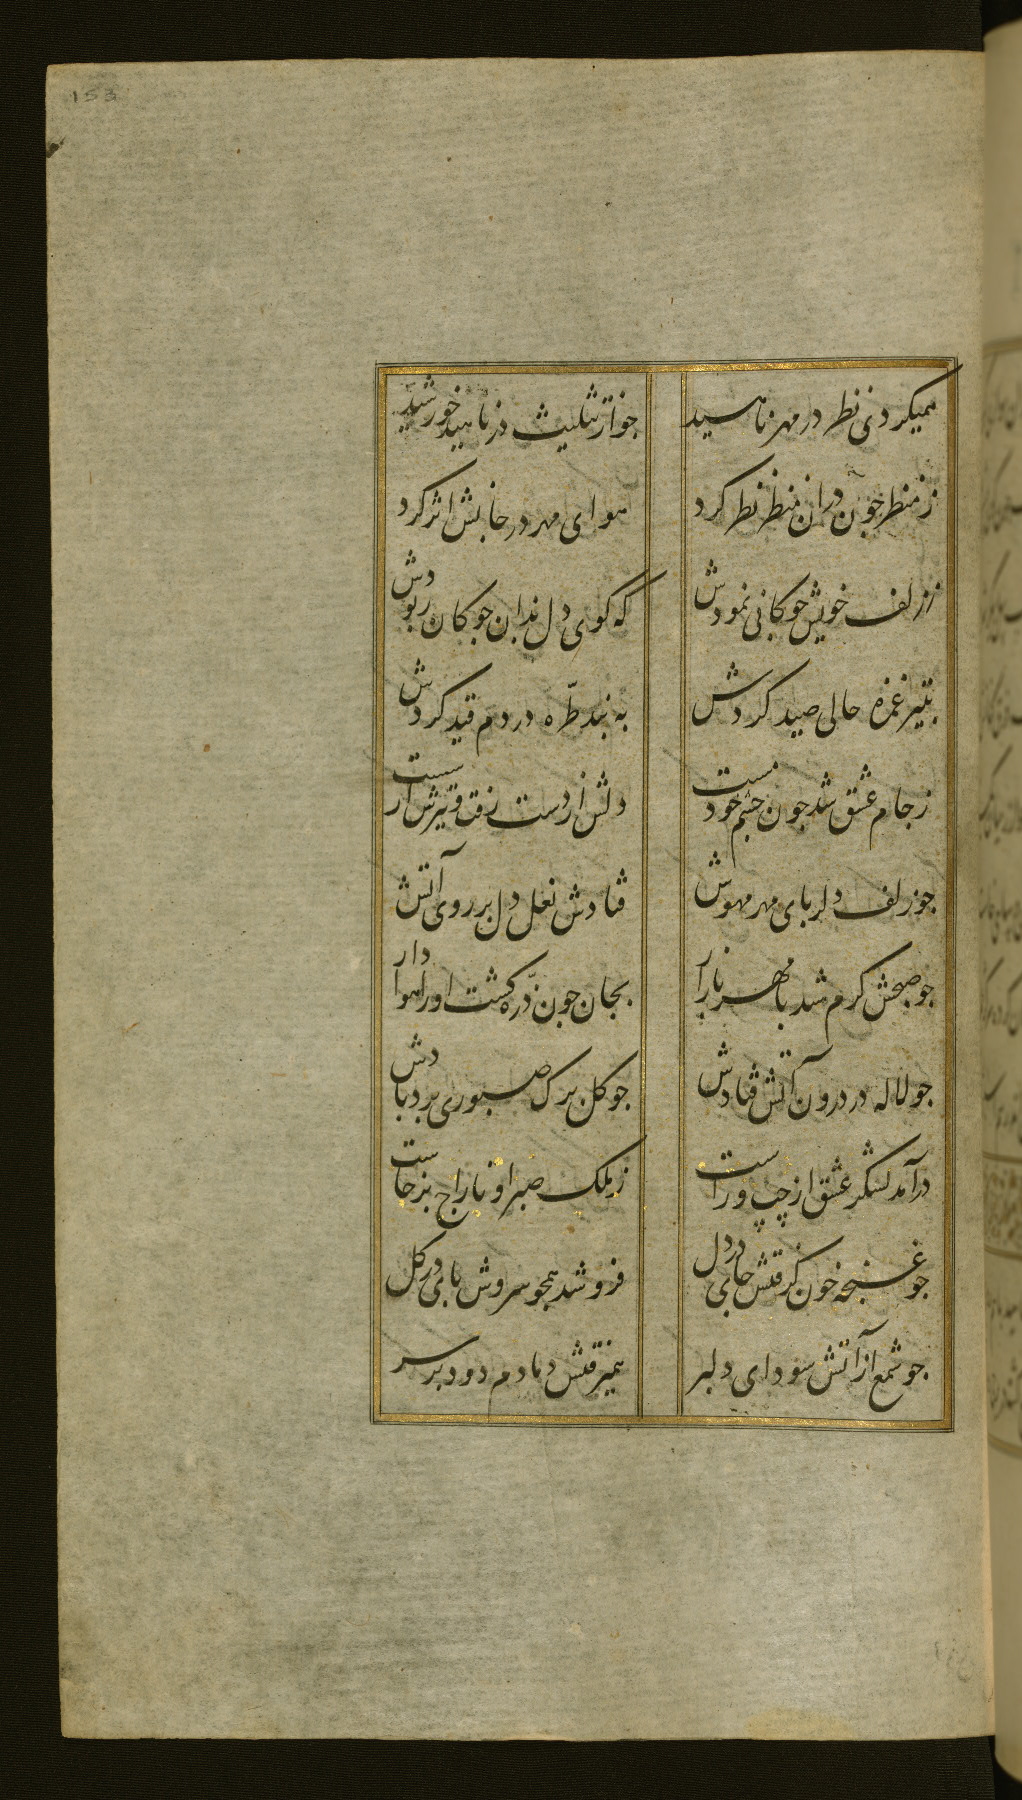 153
همیکردی نظر در مهر ناهید جو از تثلیث در ناهید خورشید
ز منظر جون دران منظر نظر کرد هوای مهر در جانش اثر کرد
ز زلف خویش جوکانی نمودش که کوی دل بدان جوکان ربودش
بتیر غمزه حالی صید کردش به بند طرّه در دم قید کردش
ز جام عشق شد جون جشم خود مست دلش از دست رفت و تیرش از شست
جو زلف دلربای مهر مهوش فتادش نعل دل بر روی آتش
جو صبحش کرم شد با مهر بازار بجان جون ذرّه کشت او را هوادار
جو لاله در درون آتش فتادش جو کل برک صبوری برد بادش
درآمد لشکر عشق از چپ و راست ز ملک صبر او تاراج برخاست
جو غنجه خون کرفتش جای در دل فرو شد همجو سروش بای در کل
جو شمع از آتش سودای دلبر همیرفتش دمادم دود بر سر